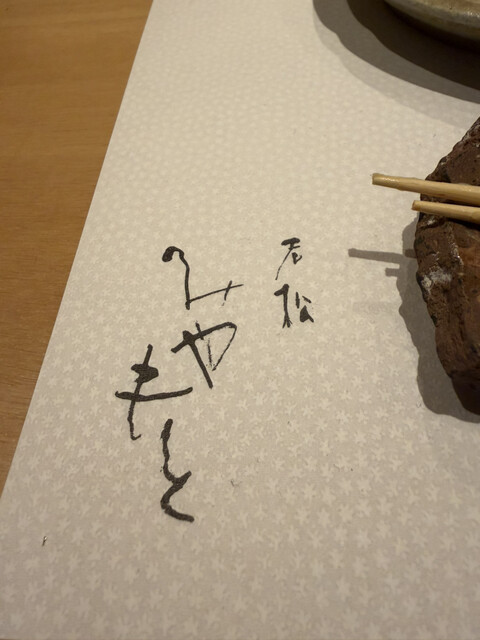 老松
みやもと